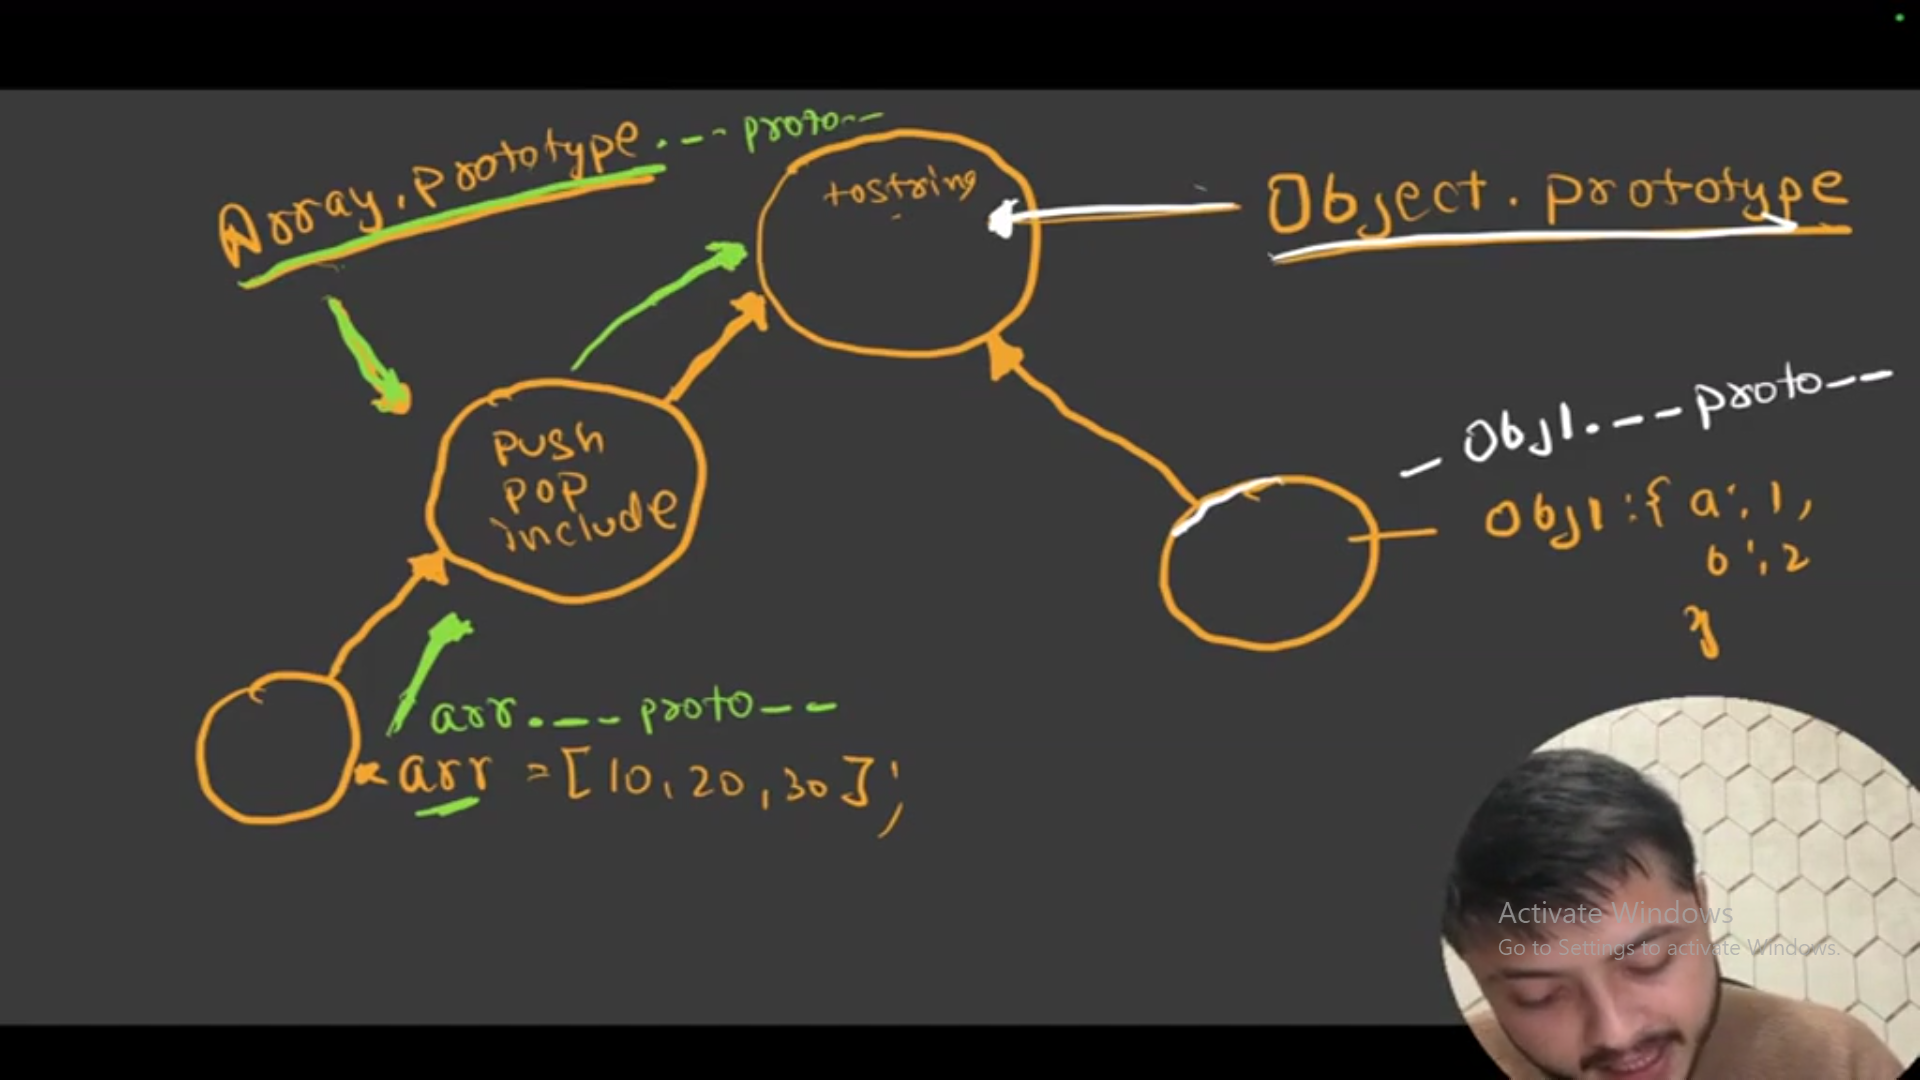 Array.prototype.---proto--
tostring
Object.prototype
push
pop
include
Obj1.---proto--
Obj1:{ a:1,
b:2
}
arr.---proto--
arr =[10,20,30];
Activate Windows
Go to Settings to activate Windows.